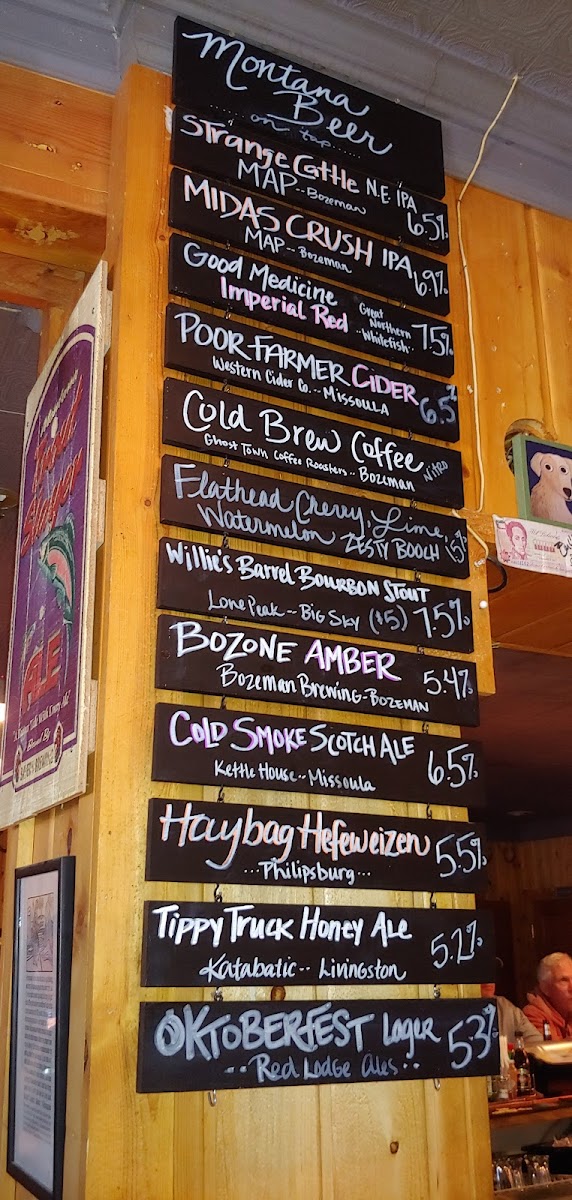 Montana
Beer
on tap
Strange Cattle N.E. IPA
MAP -- Bozeman 6.5%
MIDAS CRUSH IPA
MAP -- Bozeman 6.9%
Good Medicine
Imperial Red
Great
Northern
Whitefish
7.5%
POOR FARMER CIDER
Western Cider Co. -- MISSOULA
6.5%
Cold Brew Coffee
Ghost Town Coffee Roasters -- Bozeman
Nitro
Flathead Cherry, Lime,
Watermelon ZESTY BOOCH
Willie's Barrel BOURBON STOUT
Lone Peak -- Big Sky ($5) 7.5%
BOZONE AMBER
Bozeman Brewing - BOZEMAN
5.4%
COLD SMOKE SCOTCH ALE
Kettle House -- Missoula
6.5%
Haybag Hefeweizen
...Philipsburg...
5.5%
Tippy Truck Honey Ale
Katabatic -- Livingston
5.2%
OKTOBERFEST Lager
-- Red Lodge Ales --
5.3%
ALE